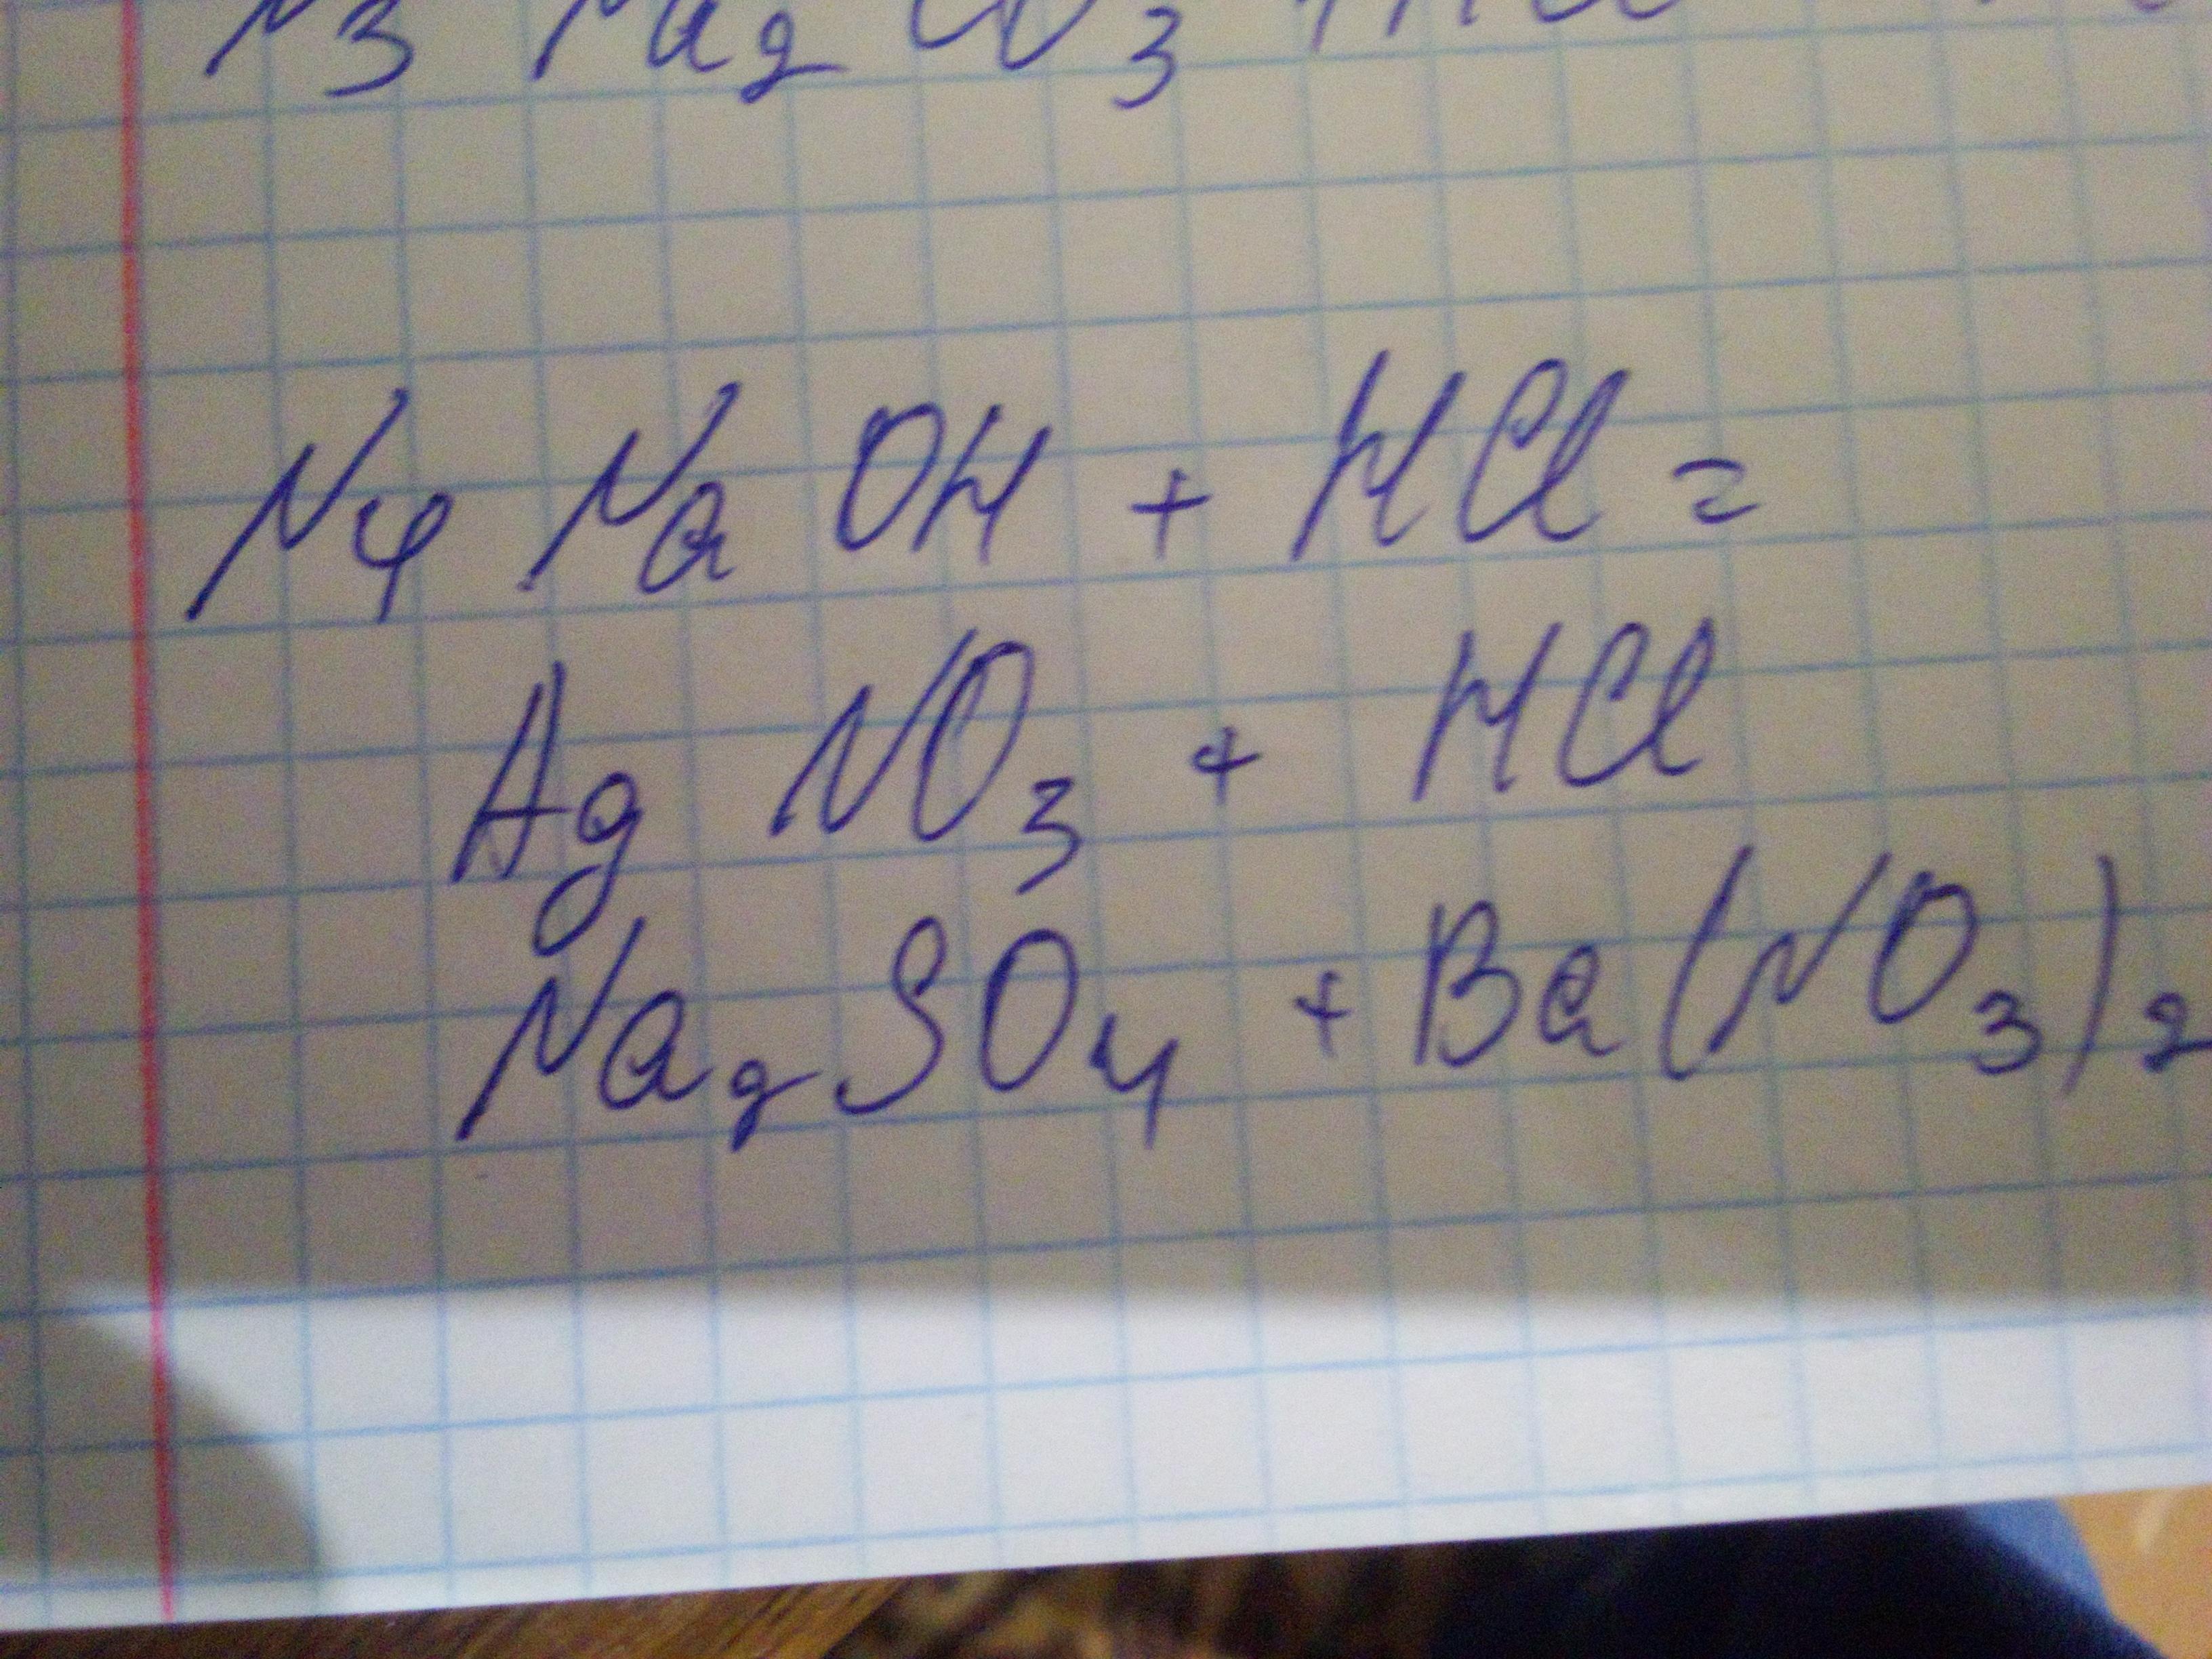 N3 Na2CO3 + HCl
N4 NaOH + HCl =
AgNO3 + HCl
Na2SO4 + Ba(NO3)2